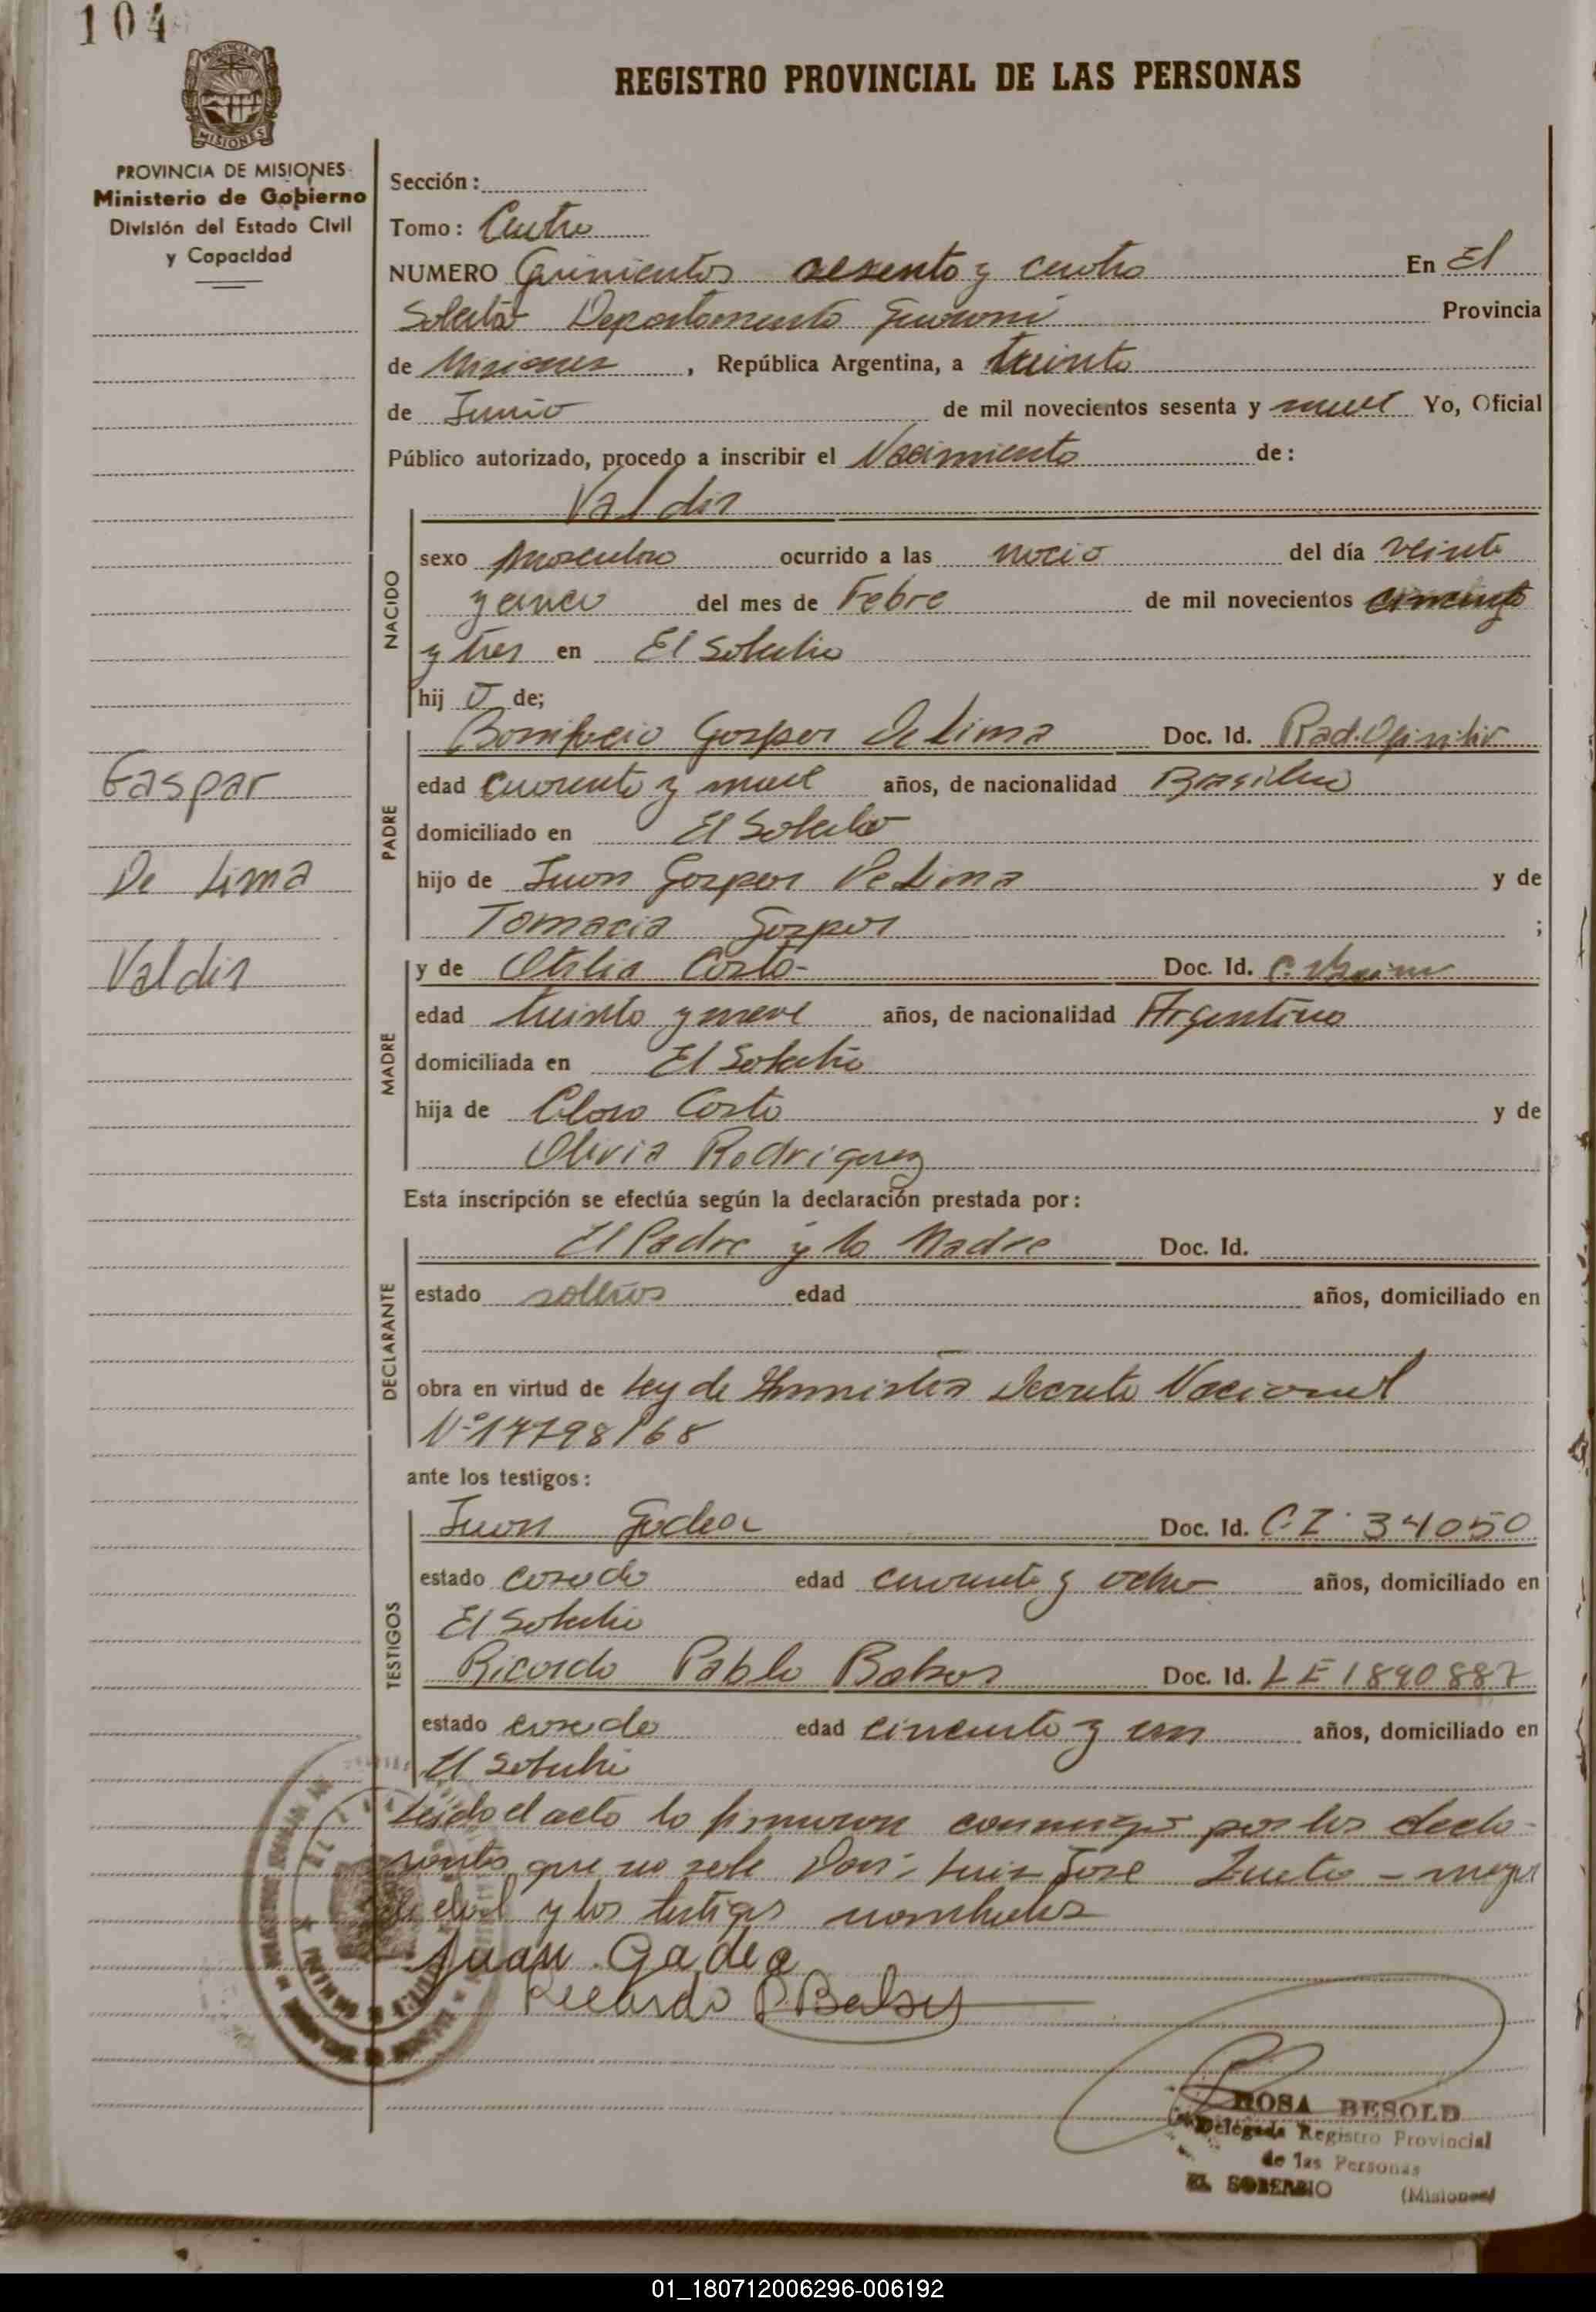 104
REGISTRO PROVINCIAL DE LAS PERSONAS
PROVINCIA DE MISIONES
Ministerio de Gobierno
División del Estado Civil
y Capacidad
Sección:
Tomo: Cuatro
NUMERO Quinientos sesenta y cuatro En El
Soberbio Departamento Guarani Provincia
de Misiones, República Argentina, a treinta
de Junio de mil novecientos sesenta y nueve Yo, Oficial
Público autorizado, procedo a inscribir el Nacimiento de:
Valdir
NACIDO
sexo Masculino ocurrido a las del día veinte
y cinco del mes de Febre de mil novecientos cincuenta
y tres en El Soberbio
hij o de;
Bonifacio Gaspar De Lima Doc. Id. Rad.
PADRE
edad cuarenta y nueve años, de nacionalidad Brasilero
domiciliado en El Soberbio
hijo de Juan Gaspar De Lima y de
Tomacia Gaspar ;
Gaspar
De Lima
Valdir
y de Otilia Costa- Doc. Id.
MADRE
edad treinta y nueve años, de nacionalidad Argentina
domiciliada en El Soberbio
hija de Costa y de
Olivia Rodriguez
Esta inscripción se efectúa según la declaración prestada por:
El Padre y la Madre Doc. Id.
DECLARANTE
estado solteros edad años, domiciliado en
obra en virtud de Ley de Amnistia Decreto Nacional
Nº 17798/68
ante los testigos:
TESTIGOS
Juan Gadea Doc. Id. C.I. 34050
estado casado edad cuarenta y ocho años, domiciliado en
El Soberbio
Ricardo Pablo Doc. Id. LE 1890887
estado casado edad cincuenta y un años, domiciliado en
El Soberbio
Leido el acta la firmaron conmigo por los decla-
rantes que no sabe Luis Jose - mayor
de edad y los testigos nombrados
Juan Gadea
Ricardo P.
ROSA BESOLD
Delegada Registro Provincial
de las Personas
EL SOBERBIO (Misiones)
01_180712006296-006192